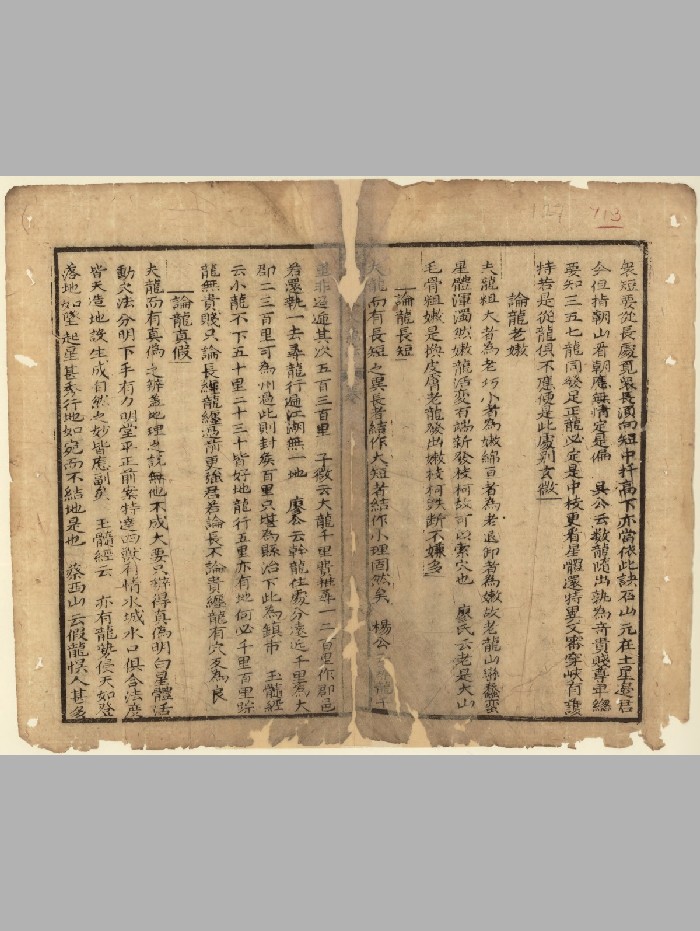 衆短要從長處覓衆長須向短中扦高下亦當依此訣石山元在土星邊君
今但指朝山看朝應無情定是偏 吳公云数龍隨出孰為奇貴賤尊卑總
要知三五七龍同發足正龍必定是中枝更看星體還特異又審穿峽百護
持若是從龍俱不應便是此處判玄微
論龍老嫩
夫龍粗大者為老巧小者為嫩綿亘者為老退卸者為嫩故老龍山巒蠢蠻
星體渾濁然嫩龍活变有端新發枝柯故可以索穴也 廖氏云老是大山
毛骨粗嫩是換皮膚老龍發出嫩枝柯跌断不嫌多
論龍長短
夫龍而有長短之異長者結作大短者結作小理固然矣 楊公云 龍千
里非遥遠其次五百三百里 子微云大龍千里費推尋一二百里作郡邑
君還執一去尋龍行遍江湖無一地 廖公云幹龍住處分遠近千里為大
郡二三百里可為州過此則封侯百里只堪為縣治下此為鎮市 玉髓經
云小龍不下五十里二十三十皆好地龍行五里亦有地何必千里百里踪
龍無貴賤只論長 龍經 前更強君若論長不論貴纏龍有穴反為良
論龍真假
夫龍而有真偽之辨 地理之説無他不成大要只辨得真偽明白星體活
動穴法分明下手有力明堂平正前案特達西獸有情水城水口俱合法度
皆天造地設生成自然之妙皆應副矣 玉髓經云 亦有龍勢侵天如登
落地如墜起星甚秀行地如宛而不結地是也 蔡西山云假龍悮人甚多
713